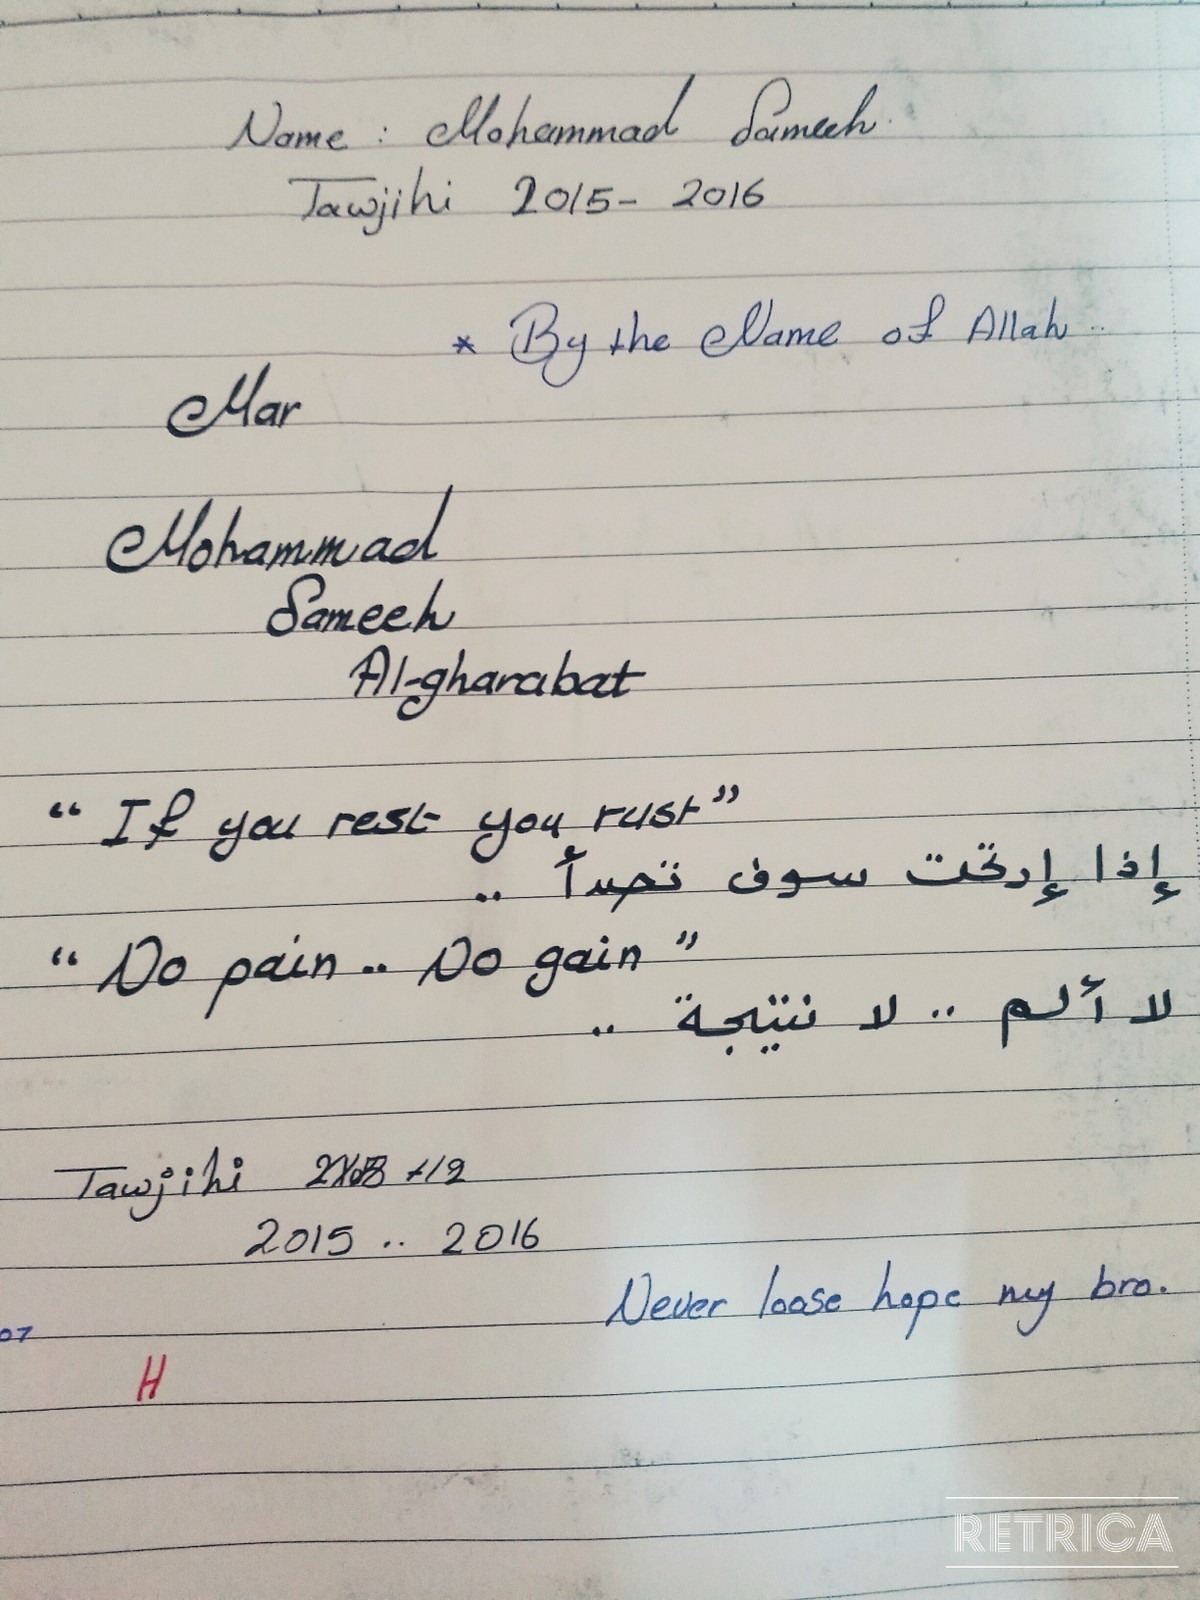 Name : Mohammad Sameeh.
Tawjihi 2015 - 2016
* By the Name of Allah ..
Mar
Mohammad
Sameeh
Al-gharabat
“ If you rest you rust ”
إذا إرتحت سوف تصدأ ..
“ No pain .. No gain ”
لا ألم .. لا نتيجة ..
Tawjihi
2015 .. 2016
Never loose hope my bro.
07
H
RETRICA